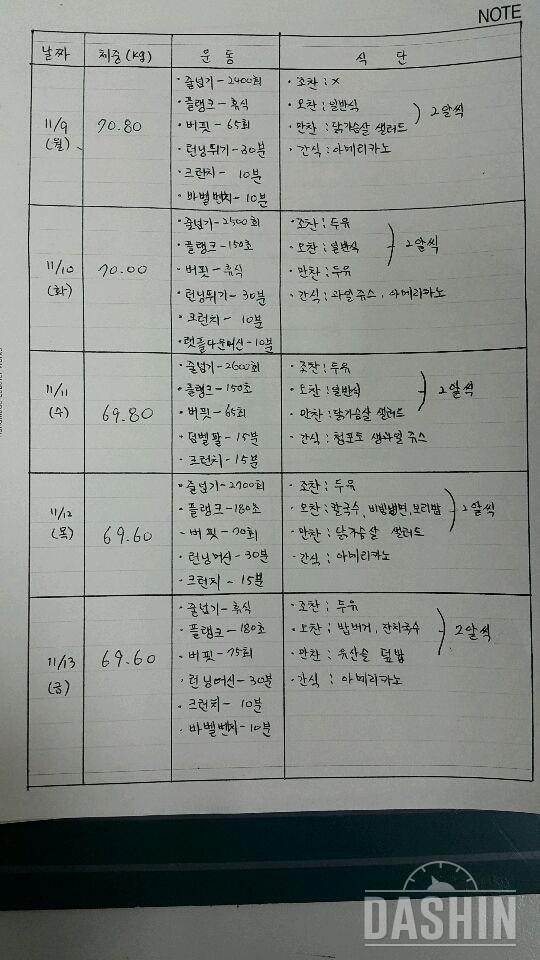 NOTE
날짜 체중(kg) 운동 식단
11/9
(월)
70.80
· 줄넘기 - 2400회
· 플랭크 - 휴식
· 버핏 - 65회
· 런닝뛰기 - 30분
· 크런치 - 10분
· 바벨벤치 - 10분
· 조찬 : x
· 오찬 : 일반식
· 만찬 : 닭가슴살 샐러드
· 간식 : 아메리카노
2알씩
11/10
(화)
70.00
· 줄넘기 - 2500회
· 플랭크 - 150초
· 버핏 - 휴식
· 런닝뛰기 - 30분
· 크런치 - 10분
· 랫풀다운머신 - 10분
· 조찬 : 두유
· 오찬 : 일반식
· 만찬 : 두유
· 간식 : 과일쥬스, 아메리카노
2알씩
11/11
(수)
69.80
· 줄넘기 - 2600회
· 플랭크 - 150초
· 버핏 - 65회
· 덤벨팔 - 15분
· 크런치 - 15분
· 조찬 : 두유
· 오찬 : 일반식
· 만찬 : 닭가슴살 샐러드
· 간식 : 청포도 생과일 쥬스
2알씩
11/12
(목)
69.60
· 줄넘기 - 2700회
· 플랭크 - 180초
· 버핏 - 70회
· 런닝머신 - 30분
· 크런치 - 15분
· 조찬 : 두유
· 오찬 : 칼국수, 비빔냉면, 보리밥
· 만찬 : 닭가슴살 샐러드
· 간식 : 아메리카노
2알씩
11/13
(금)
69.60
· 줄넘기 - 휴식
· 플랭크 - 180초
· 버핏 - 75회
· 런닝머신 - 30분
· 크런치 - 10분
· 바벨벤치 - 10분
· 조찬 : 두유
· 오찬 : 밥버거, 잔치국수
· 만찬 : 유산슬 덮밥
· 간식 : 아메리카노
2알씩
DASHIN